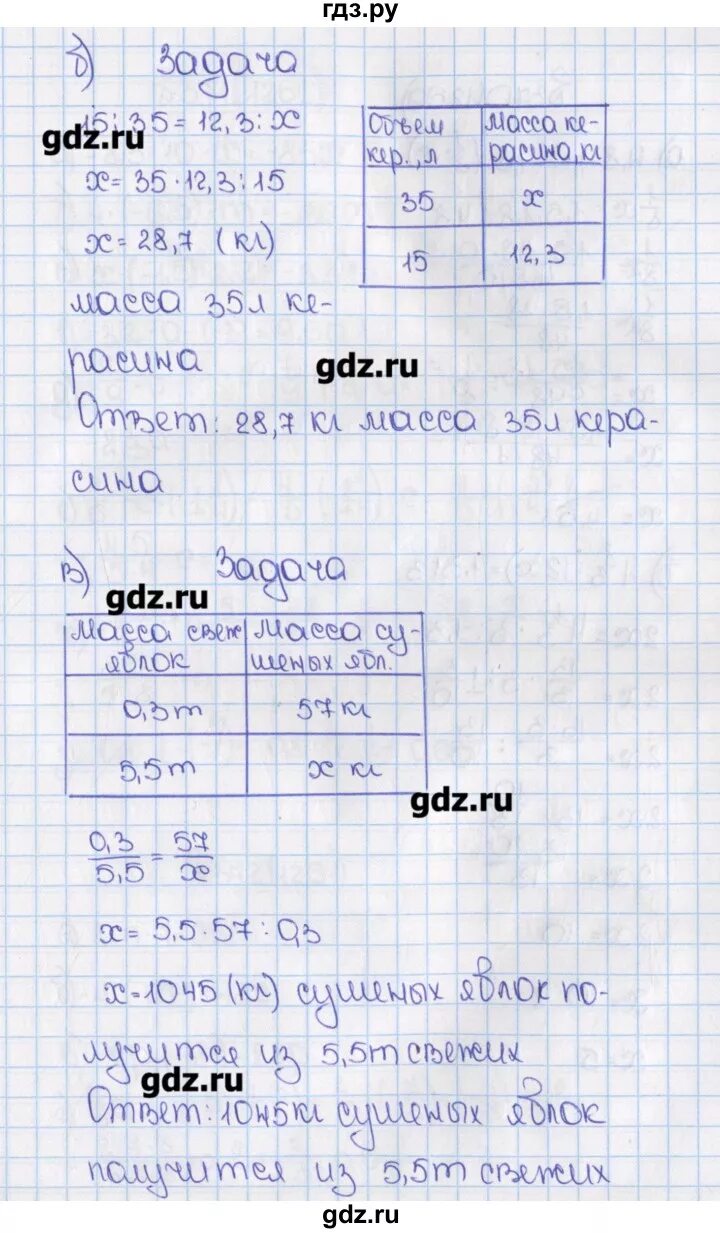 гдз.ру
б) Задача
15:35=12,3:x
gdz.ru
x=35·12,3:15
x=28,7 (кг)
Объем кер., л | Масса керасина, кг
35 | x
15 | 12,3
масса 35л ке-
расина
gdz.ru
Ответ: 28,7 кг масса 35л кера-
сина
в) Задача
gdz.ru
Масса свеж яблок | Масса сушеных ябл.
0,3т | 57 кг
5,5т | x кг
gdz.ru
0,3/5,5 = 57/x
x=5,5·57:0,3
x=1045 (кг) сушеных яблок по-
лучится из 5,5т свежих
gdz.ru
Ответ: 1045кг сушеных яблок
получится из 5,5т свежих
gdz.ru